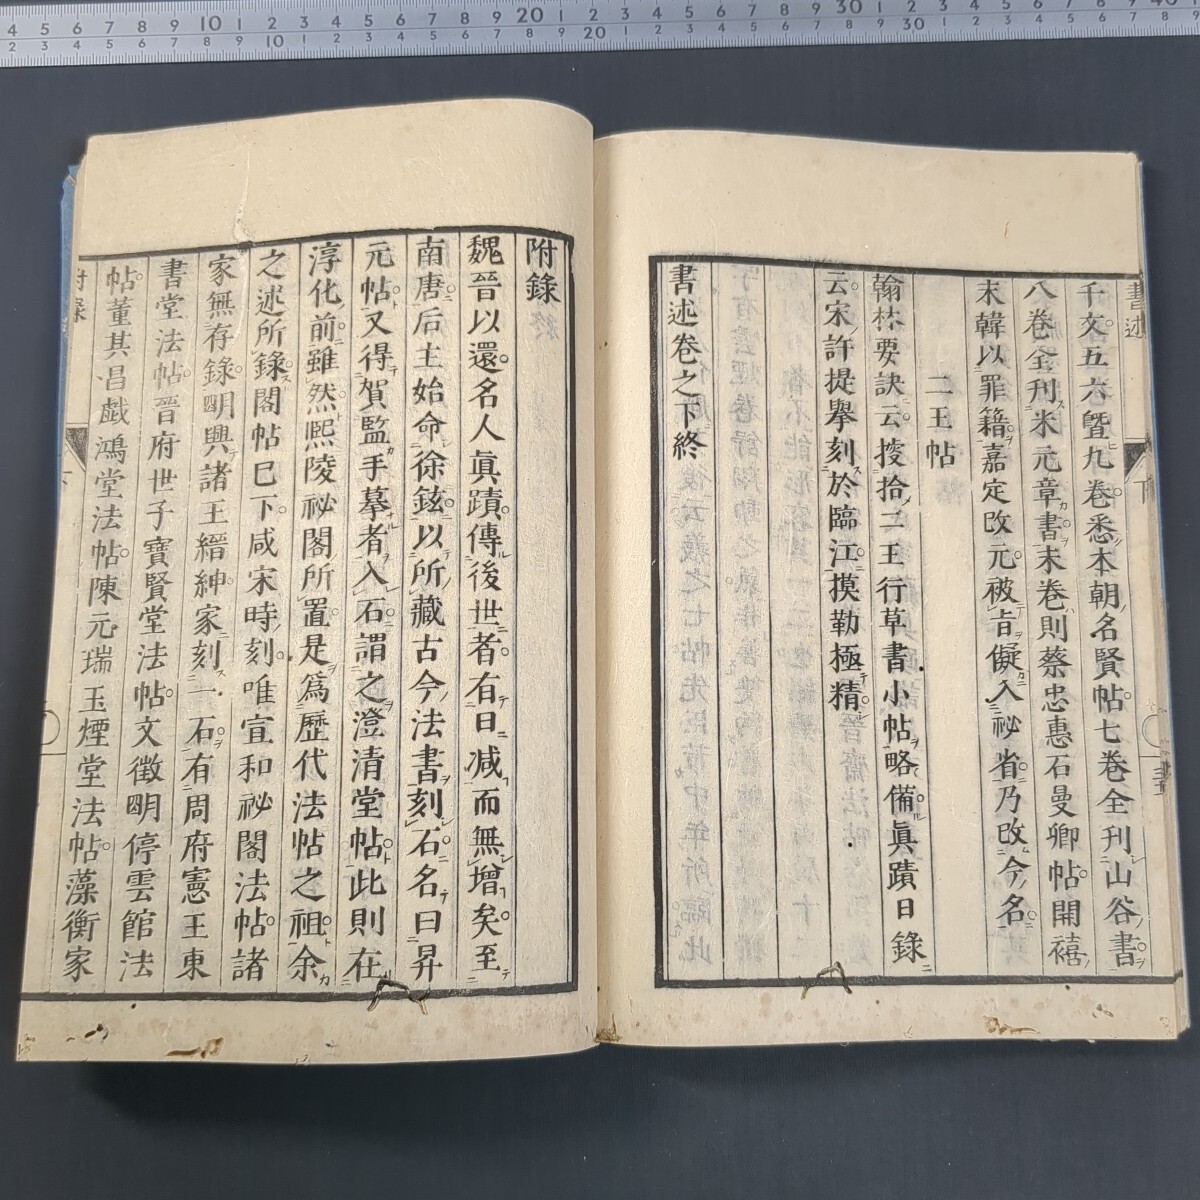 千文五六曁九卷悉本朝名賢帖七卷全刊山谷書
八卷全刊米元章書末卷則蔡忠惠石曼卿帖開禧
末韓以罪籍嘉定改元被旨儗入祕省乃改今名
二王帖
翰林要訣云掇拾二王行草書小帖略備眞蹟日錄
云宋許提擧刻於臨江摸勒極精
書述卷之下終
附錄
魏晉以還名人眞蹟傳後世者有日減而無增矣至
南唐后主始命徐鉉以所藏古今法書刻石名曰昇
元帖又得賀監手摹者入石謂之澄清堂帖此則在
淳化前雖然熙陵祕閣所置是爲歷代法帖之祖余
之述所錄閣帖已下咸宋時刻唯宣和祕閣法帖諸
家無存錄明興諸王縉紳家刻石有周府憲王東
書堂法帖晉府世子寶賢堂法帖文徵明停雲館法
帖董其昌戯鴻堂法帖陳元瑞玉煙堂法帖藻衡家